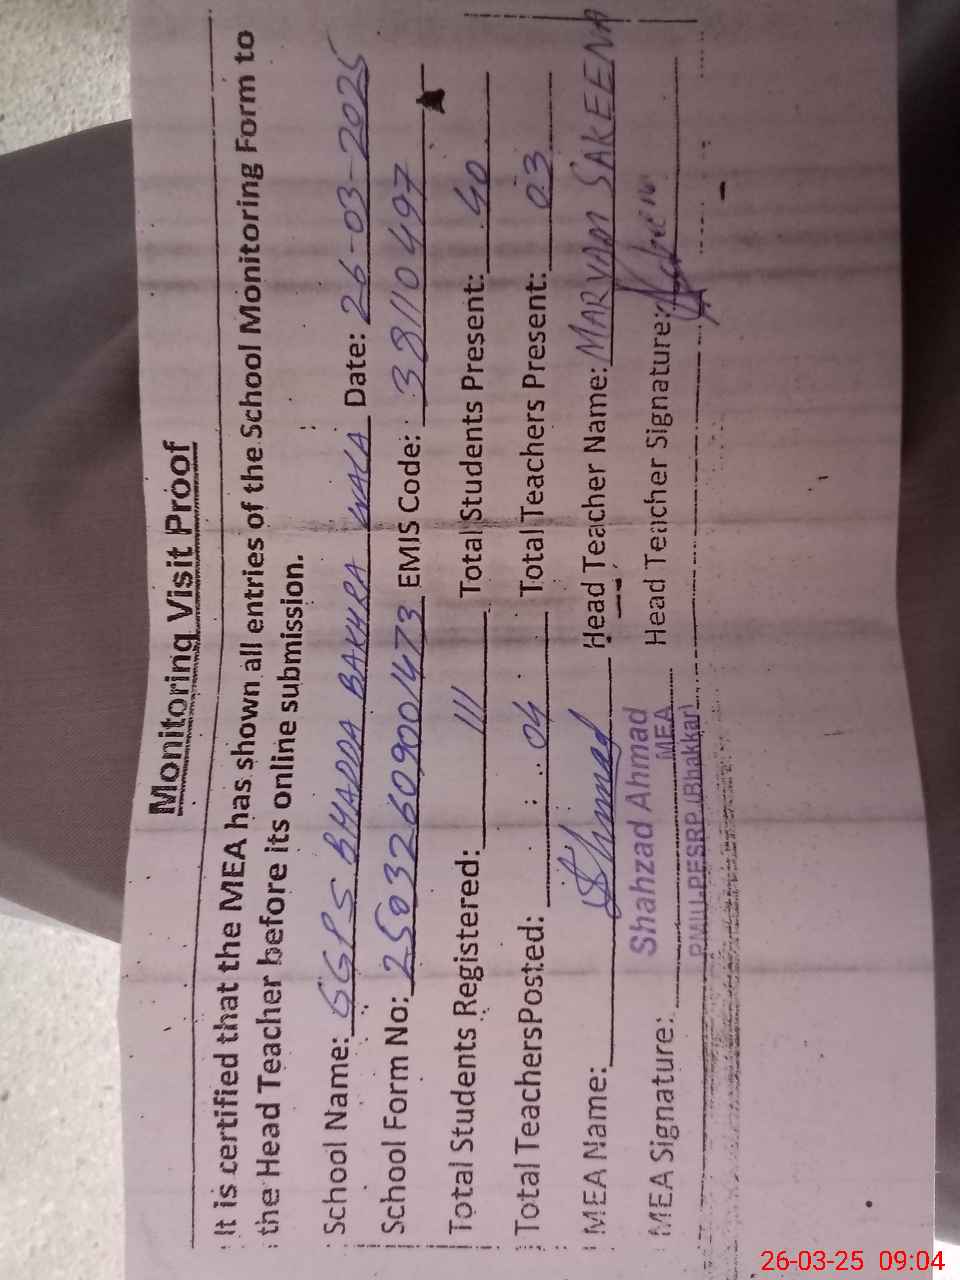 Monitoring Visit Proof
It is certified that the MEA has shown all entries of the School Monitoring Form to
the Head Teacher before its online submission.
School Name: GGPS BHADDA BAKHRA WALA Date: 26-03-2025
School Form No: 25032609001473 EMIS Code: 33110497
Total Students Registered: 111 Total Students Present: 40
Total TeachersPosted: 04 Total Teachers Present: 03
MEA Name: Head Teacher Name: MARYAM SAKEENA
MEA Signature: Head Teacher Signature:
Shahzad Ahmad
MEA
PMIU-PESRP (Bhakkar)
26-03-25 09:04